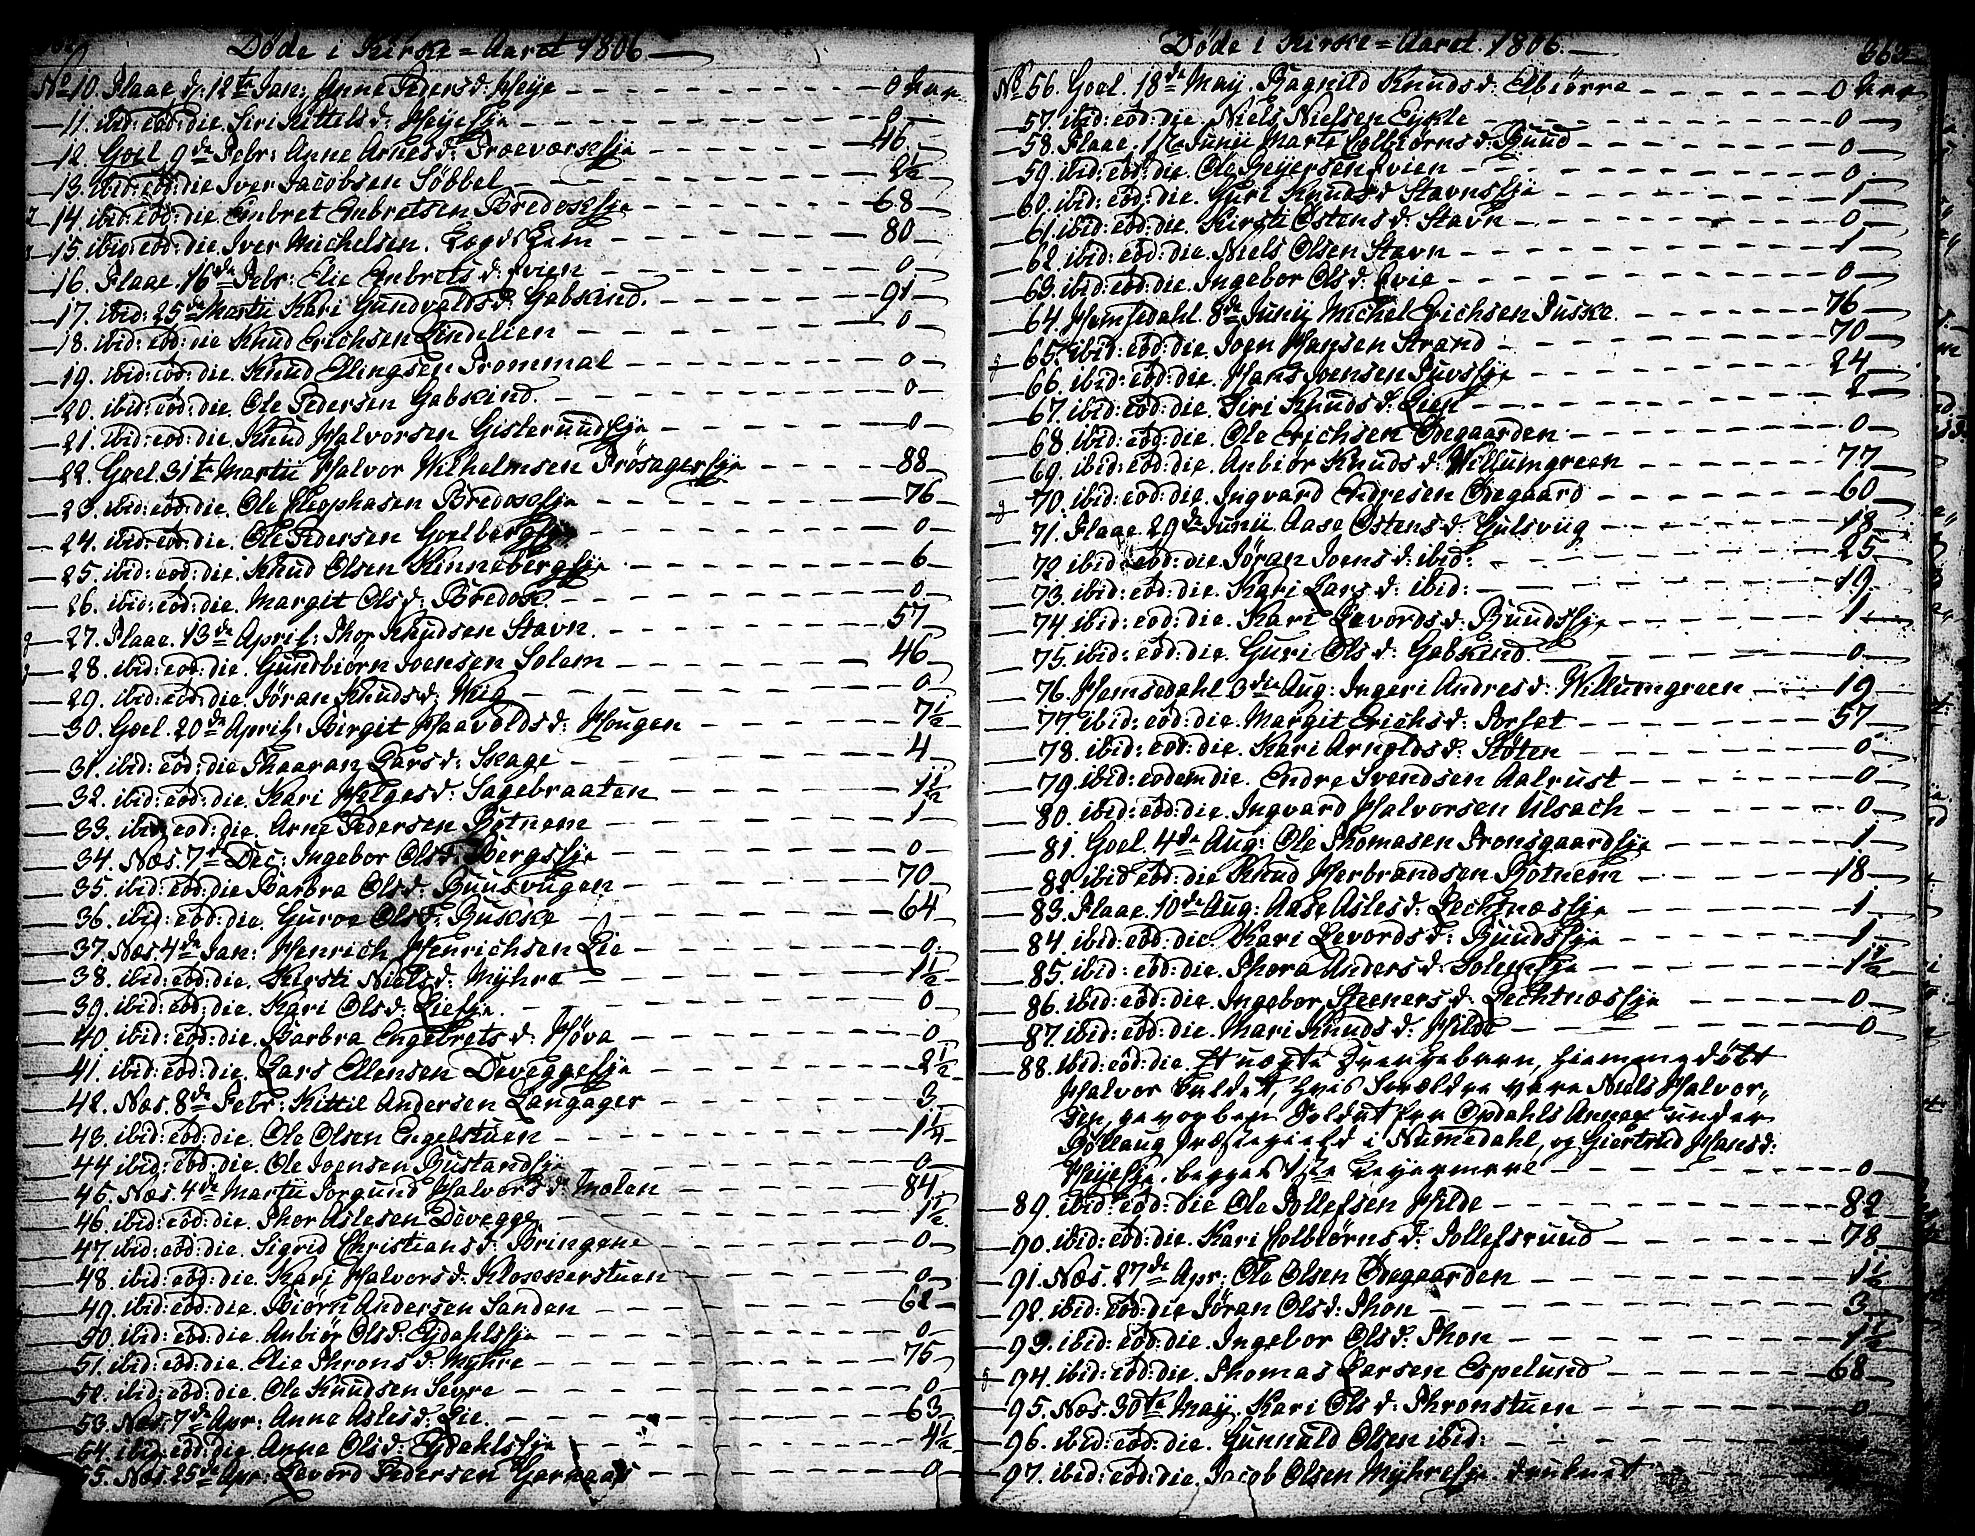 Døde i Kirke=Aaret 1806
No 10. Flaae d. 12te Jan: Anne Pedersd: Heye - 0 Aar
11. ibid: eod: die. Siri Kittelsd: Heyeeje - 0
12. Goel 9de Febr: Anne Arnesd: Præeje - 46
13. ibid: eod: die Iver Jacobsen Søbbel - 2½
14. ibid: eod: die. Embret Embretsen Bredeseje - 68
15. ibid: eod: die. Iver Michelsen - 80
16. Flaae. 16de Febr: Elie Embretsd: Avien - 0
17. ibid: 25de Martii Kari Gundvaldsd: Gabskind. - 91
18. ibid: eod: die Knud Erichsen Lindelien - 0
19. ibid: eod: die. Knud Ellingsen Trommal - 0
20. ibid: eod: die. Ole Pedersen Gabskind. - 0
21. ibid: eod: die Knud Halvorsen Gislerundeje - 0
22. Goel. 31te Martii Halvor Wilhelmsen Frøsagereje - 88
23. ibid: eod: die. Ole Stephasen Bredoseje - 76
24. ibid: eod: die. Ole Pedersen Goelbergeje - 0
25. ibid: eod: die. Knud Olsen Kinnebergeje - 6
26. ibid: eod: die. Margit Olsd: Bredose - 0
27. Flaae. 13de April: Thor Knudsen Stavn. - 57
28. ibid: eod: die. Gundbiørn Joensen Solem - 46
29. ibid: eod: die. Jøran Knudsd: Wiig - 0
30. Goel. 20de April: Birgit Haavoldsd: Hougen - 7½
31. ibid: eod: die Thaaran Larsd: Skage - 4
32. ibid: eod: die. Kari Helgesd: Sagebraaten - 1½
33. ibid: eod: die. Arne Pedersen Botnem - 1
34. Næs. 7de Dec: Ingebor Olsd: Bergseje - 0
35. ibid: eod: die Barbra Olsd: Buusvugen - 70
36. ibid: eod: die. Guroe Olsd: Buskke - 64
37. Næs. 4de Jan: Henrich Henrichsen Lie - 0
38. ibid: eod: die. Kirsti Nielsd: Myhre - 1½
39. ibid: eod: die. Kari Olsd: Lieeje. - 0
40. ibid: eod: die. Barbra Engebretsd: Høva - 0
41. ibid: eod: die. Lars Ellensen Deveggeeje - 2½
42. Næs. 8de Febr: Kittil Andersen Langager - 3
43. ibid: eod: die. Ole Olsen Engelstuen - 1¼
44 ibid: eod: die. Ole Joensen Bustandeje - 0
45. Næs. 4de Martii Jorgund Halvorsd: Molen - 84
46. ibid: eod: die. Thor Aslesen Devegge - 1½
47. ibid: eod: die. Sigrid Christiansd: Bringene - 0
48. ibid: eod: die. Kari Halvorsd: Klokkerstuen - 0
49. ibid: eod: die. Biørn Andersen Sanden - 62
50. ibid: eod: die. Anbiør Olsd: Eydahlseje - 0
51. ibid: eod: die. Elie Thronsd: Myhre - 75
52. ibid: eod: die. Ole Knudsen Sevre - 0
53. Næs. 7de Apr: Anne Aslesd: Lie. - 63
54. ibid: eod: die. Anne Olsd: Eydahlseje - 4½
55. Næs. 25de Apr: Levord Pedersen Garnaas - 0
Døde i Kirke=Aaret. 1806.
No 56. Goel. 18de May. Ragnild Knudsd: Elbiørre - 0 Aar
57. ibid: eod: die. Niels Nielsen Eykle - 0
58. Flaae. 1te Junii Marte Colbiørnsd: Ruud - 0
59. ibid: eod: die. Ole Reyersen Avien - 0
60. ibid: eod: die. Guri Knudsd: Stavnseje - 1
61. ibid: eod: die. Kirsti Ostensd: Stavn - 0
62. ibid: eod: die. Niels Olsen Stavn - 1
63. ibid: eod: die. Ingebor Olsd: Avie - 0
64. Hemsedahl. 8de Junii Michel Erichsen Tuske. - 76
65. ibid: eod: die. Joen Hansen Strand - 70
66. ibid: eod: die. Hans Joensen Tuvseje - 24
67. ibid: eod: die. Siri Knudsd: Lien - 2
68. ibid: eod: die. Ole Erichsen Ødegaarden - 0
69. ibid: eod: die. Anbiør Knudsd: Willumgreen - 77
70. ibid: eod: die. Ingvard Endresen Ødegaard - 60
71. Flaae. 29de Junii Aase Ostensd: Gulsviig - 18
72 ibid: eod: die. Jøran Joensd: ibid: - 25
73. ibid: eod: die. Kari Larsd: ibid: - 19
74. ibid: eod: die. Kari Levordsd: Ruudseje - 1
75. ibid: eod: die. Guri Olsd: Gabskind. - 0
76. Hemsedahl. 3die Aug: Ingeri Andresd: Willumgreen - 19
77. ibid: eod: die. Margit Erichsd: Torset - 57
78. ibid: eod: die. Kari Arnoldsd: Støten - 0
79. ibid: eodem die. Endre Svendsen Aalrust - 0
80. ibid: eod: die. Ingvard Halvorsen Ulsach - 0
81. Goel. 4de Aug: Ole Thomasen Tronsgaardeje - 1
82. ibid: eod: die Knud Herbrandsen Botnem - 18
83. Flaae. 10de Aug: Aase Aslesd: Lechtnæseje - 1
84. ibid: eod: die. Kari Levordsd: Ruudseje - 1
85. ibid: eod: die. Thora Andersd: Solemeje - 1½
86. ibid: eod: die. Ingebor Steenersd: Lechtnæseje - 0
87. ibid: eod: die. Mari Knudsd: Hilde - 0
88. ibid: eod: die. Et uægte Drengebarn, hiemmedøbt
Halvor kaldet, hvis Forældre vare Niels Halvor-
sen, gevorben Soldat fra Opdahls Annex under
Rollaug Præstegield i Nummedahl, og Giertrud Hansd:
Heyeeje. begges 1te Leyermaal - 0
89. ibid: eod: die Ole Tollefsen Hilde - 82
90. ibid: eod: die. Kari Colbiørnsd: Tollefsrund - 78
91. Næs. 27de Apr: Ole Olsen Ødegaarden - 1½
92. ibid: eod: die Jøran Olsd: Thon - 3
93. ibid: eod: die. Ingebor Olsd: Thon - 1½
94. ibid: eod: die. Thomas Larsen Espelund - 68
95. Næs. 30te May. Kari Olsd: Thronstuen - 0
96. ibid: eod: die. Gunnuld Olsen ibid:
97. ibid: eod: die. Jacob Olsen Myhreeje. druknet